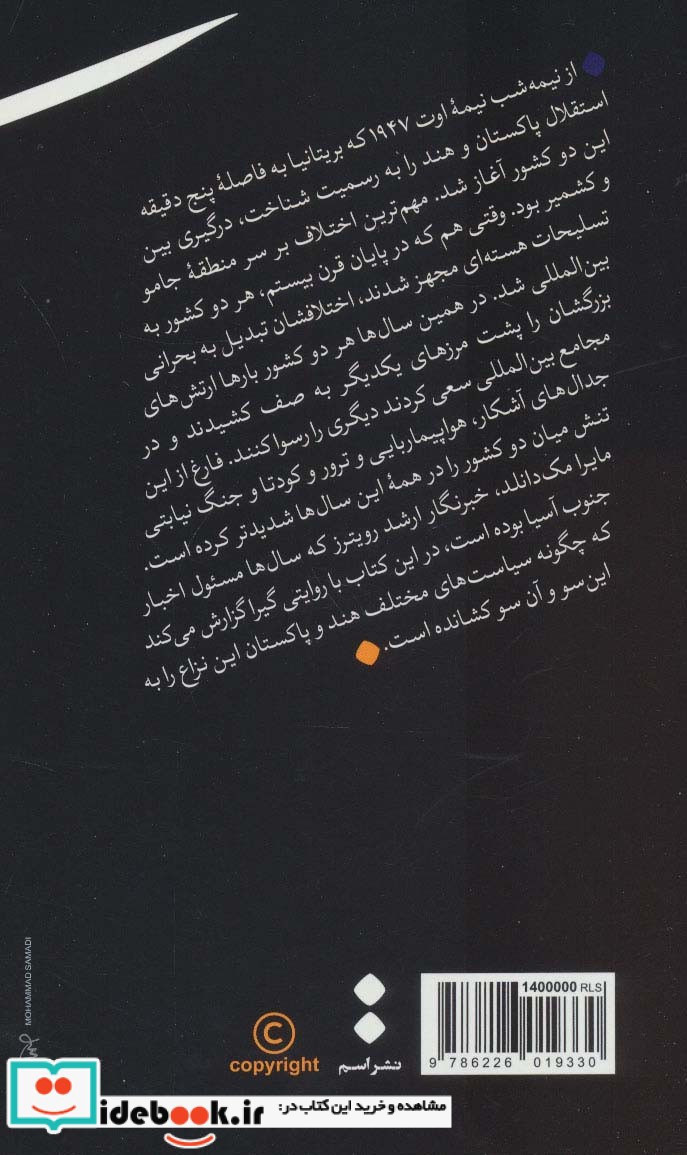 از نیمه‌شب نیمهٔ اوت ۱۹۴۷ که بریتانیا به فاصلهٔ پنج دقیقه
استقلال پاکستان و هند را به رسمیت شناخت، درگیری بین
این دو کشور آغاز شد. مهم‌ترین اختلاف بر سر منطقهٔ جامو
و کشمیر بود. وقتی هم که در پایان قرن بیستم، هر دو کشور به
تسلیحات هسته‌ای مجهز شدند، اختلافشان تبدیل به بحرانی
بین‌المللی شد. در همین سال‌ها هر دو کشور بارها ارتش‌های
بزرگشان را پشت مرزهای یکدیگر به صف کشیدند و در
مجامع بین‌المللی سعی کردند دیگری را رسوا کنند. فارغ از این
جدال‌های آشکار، هواپیماربایی و ترور و کودتا و جنگ نیابتی
تنش میان دو کشور را در همهٔ این سال‌ها شدیدتر کرده است.
مایرا مک‌دانلد، خبرنگار ارشد رویترز که سال‌ها مسئول اخبار
جنوب آسیا بوده است، در این کتاب با روایتی گیرا گزارش می‌کند
که چگونه سیاست‌های مختلف هند و پاکستان این نزاع را به
این سو و آن سو کشانده است.
MOHAMMAD SAMADI
1400000 RLS
9 786226 019330
نشر اسم
copyright
مشاهده و خرید این کتاب در:
idebook.ir